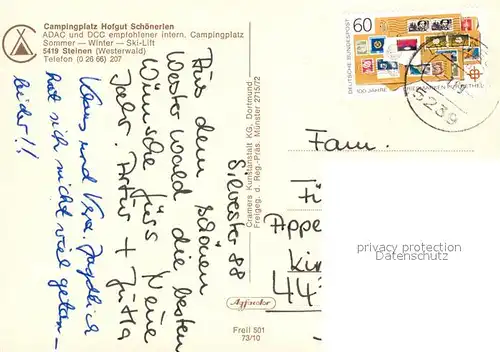 Campingplatz Hofgut Schönerlen
ADAC und DCC empfohlener intern. Campingplatz
Sommer — Winter — Ski-Lift
5419 Steinen (Westerwald)
Telefon (0 26 66) 207
Silvester 88
Aus dem schönen
Westerwald die besten
Wünsche fürs Neue
Jahr. Artur + Jutta
Klaus und Vera. Jagdlich
hat sich nicht viel getan –
leider!!
Cramers Kunstanstalt KG, Dortmund
Freigeg. d. Reg.-Präs. Münster 2715/72
Freil 501
73/10
60
DEUTSCHE BUNDESPOST
100 JAHRE
5239
Fam.
Appe
Kir
44
privacy protection